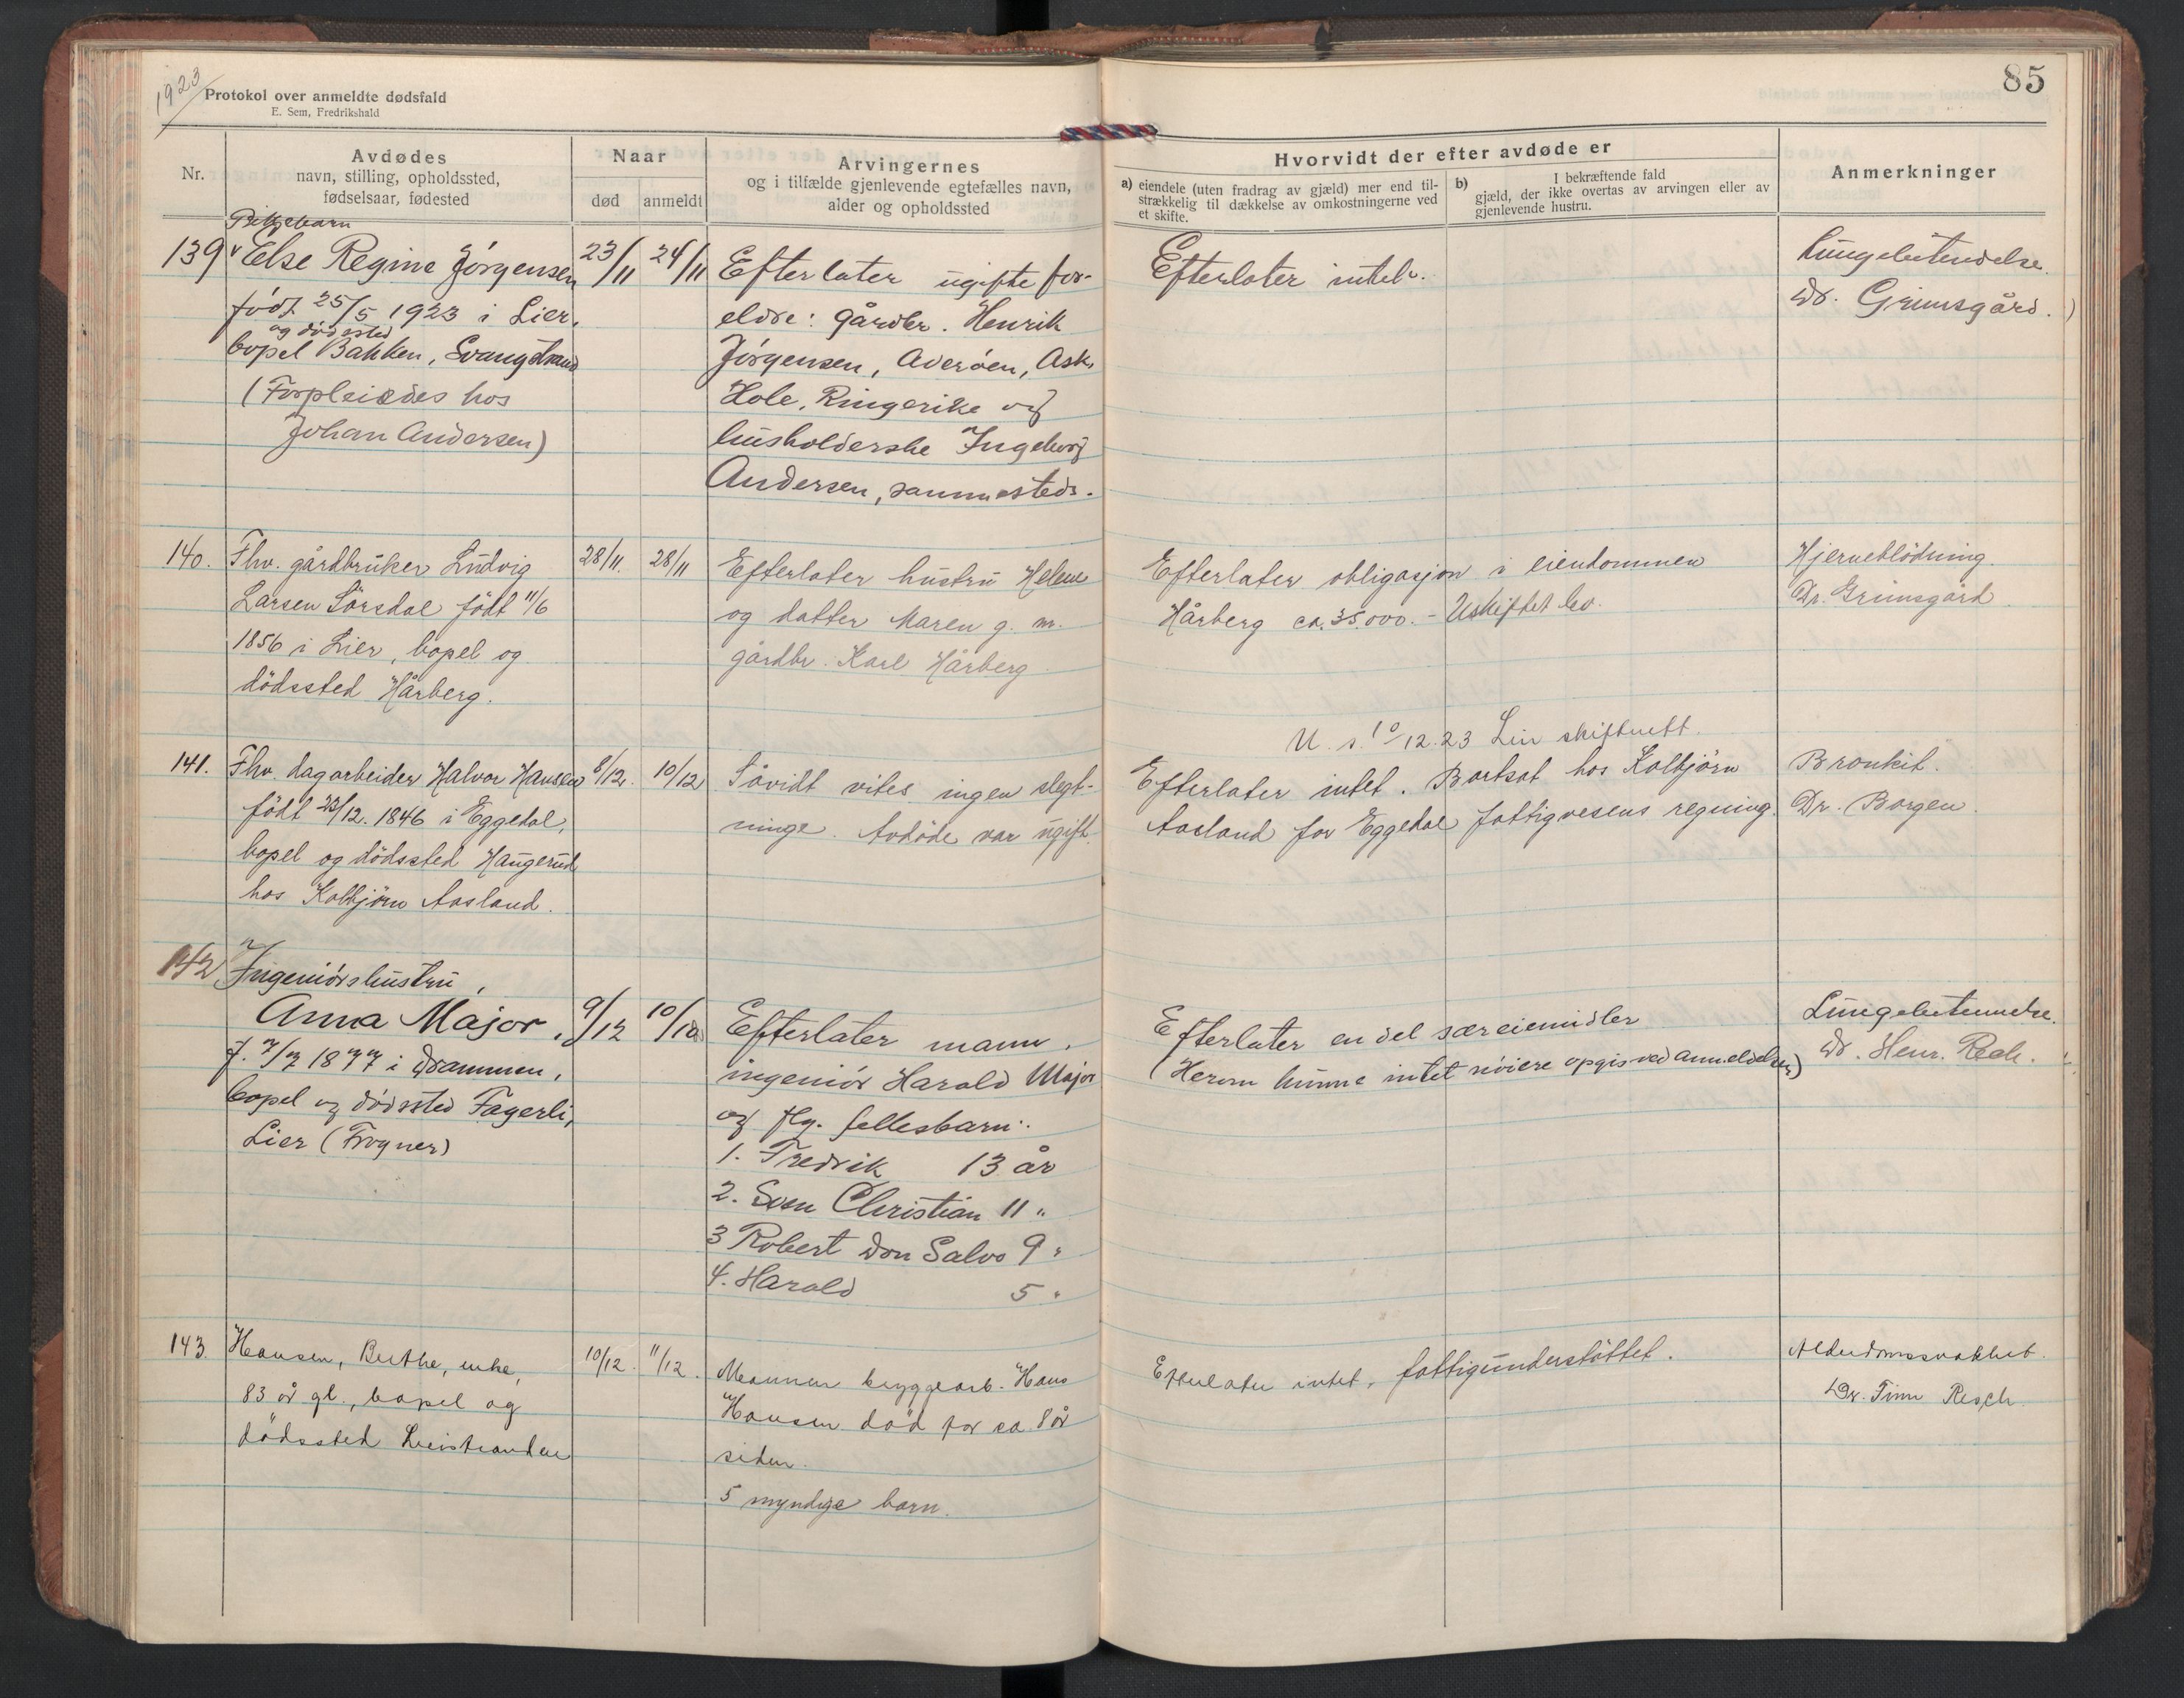 1923
Protokol over anmeldte dødsfald
E. Sem, Fredrikshald
85
Nr.
Avdødes
navn, stilling, opholdssted,
fødselsaar, fødested
Naar
død
anmeldt
Arvingernes
og i tilfælde gjenlevende egtefælles navn,
alder og opholdssted
Hvorvidt der efter avdøde er
a) eiendele (uten fradrag av gjæld) mer end til-
strækkelig til dækkelse av omkostningerne ved
et skifte.
b) I bekræftende fald
gjæld, der ikke overtas av arvingen eller av
gjenlevende hustru.
Anmerkninger
Pikebarn
139 Else Regine Jörgensen
født 25/5 1923 i Lier,
og dødssted
bopel Bakken, Svangstrand
(Forpleiedes hos
Johan Andersen)
23/11
24/11
Efterlater ugifte for-
eldre: Gårdbr. Henrik
Jörgensen, Averøen, Ask,
Hole, Ringerike og
husholderske Ingeborg
Andersen, sammesteds.
Efterlater intet.
Lungebetendelse.
Dr. Grimsgård.
140. Fhv. gårdbruker Ludvig
Larsen Sörsdal född 11/6
1856 i Lier, bopel og
dödssted Hårberg.
28/11.
28/11
Efterlater hustru Helene
og datter Maren g. m.
gårdbr. Karl Hårberg
Efterlater obligasjon i eiendommen
Hårberg ca. 35.000.- Uskiftet bo.
U. s. 10/12.23 Lier skifterett.
Hjerneblödning.
Dr. Grimsgård
141. Fhv. dagarbeider Halvor Hansen
födt 23/12. 1846 i Eggedal,
bopel og dödssted Haugerud
hos Kolbjörn Aasland.
8/12.
10/12
Såvidt vites ingen slegt-
ninge. Avdöde var ugift.
Efterlater intet. Bortsat hos Kolbjörn
Aasland for Eggedal fattigvesens regning.
Bronkit.
Dr. Borgen.
142 Ingeniørshustru,
Anna Major,
f. 7/7 1877 i Drammen,
bopel og dødssted Fagerli,
Lier (Frogner)
9/12
10/12
Efterlater mann,
ingeniör Harald Major
og flg. fellesbarn:
1. Fredrik 13 år
2. Sven Christian 11 "
3 Robert Don Salvo 9 "
4. Harald 5 "
Efterlater en del særeiemidler
(Herom kunne intet nöiere opgis ved anmeldelsen)
Lungebetennelse.
Dr. Henr. Rech.
143. Hansen, Berthe, enke,
83 år gl., bopel og
dödssted Lierstranden
10/12.
11/12.
Mannen bryggearb. Hans
Hansen död for ca. 8 år
siden.
5 myndige barn.
Efterlater intet, fattigunderstöttet.
Alderdomssvakhet.
Dr. Finn Resch.